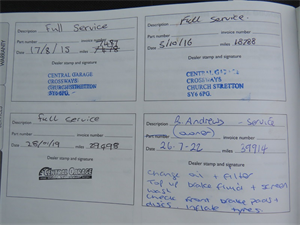 WARRANTY
Full Service
Part number
invoice number
Date 17/8/15
Dealer stamp and signature
CENTRAL GARAGE
CROSSWAYS
CHURCH STRETTON
SY6 6PG
Full Service
Part number
invoice number
Date 5/10/16
Dealer stamp and signature
CENTRAL
CROSSWAYS
CHURCH STRETTON
SY6 6PG
Full Service
Part number
invoice number
Date
miles
Dealer stamp and signature
B Andrews - Service
Part number (owner)
Date 26.7.22 miles 39914
Dealer stamp and signature
Change oil + filter
Top up brake fluid + screen
wash
Check front brake pads +
discs inflate tyres